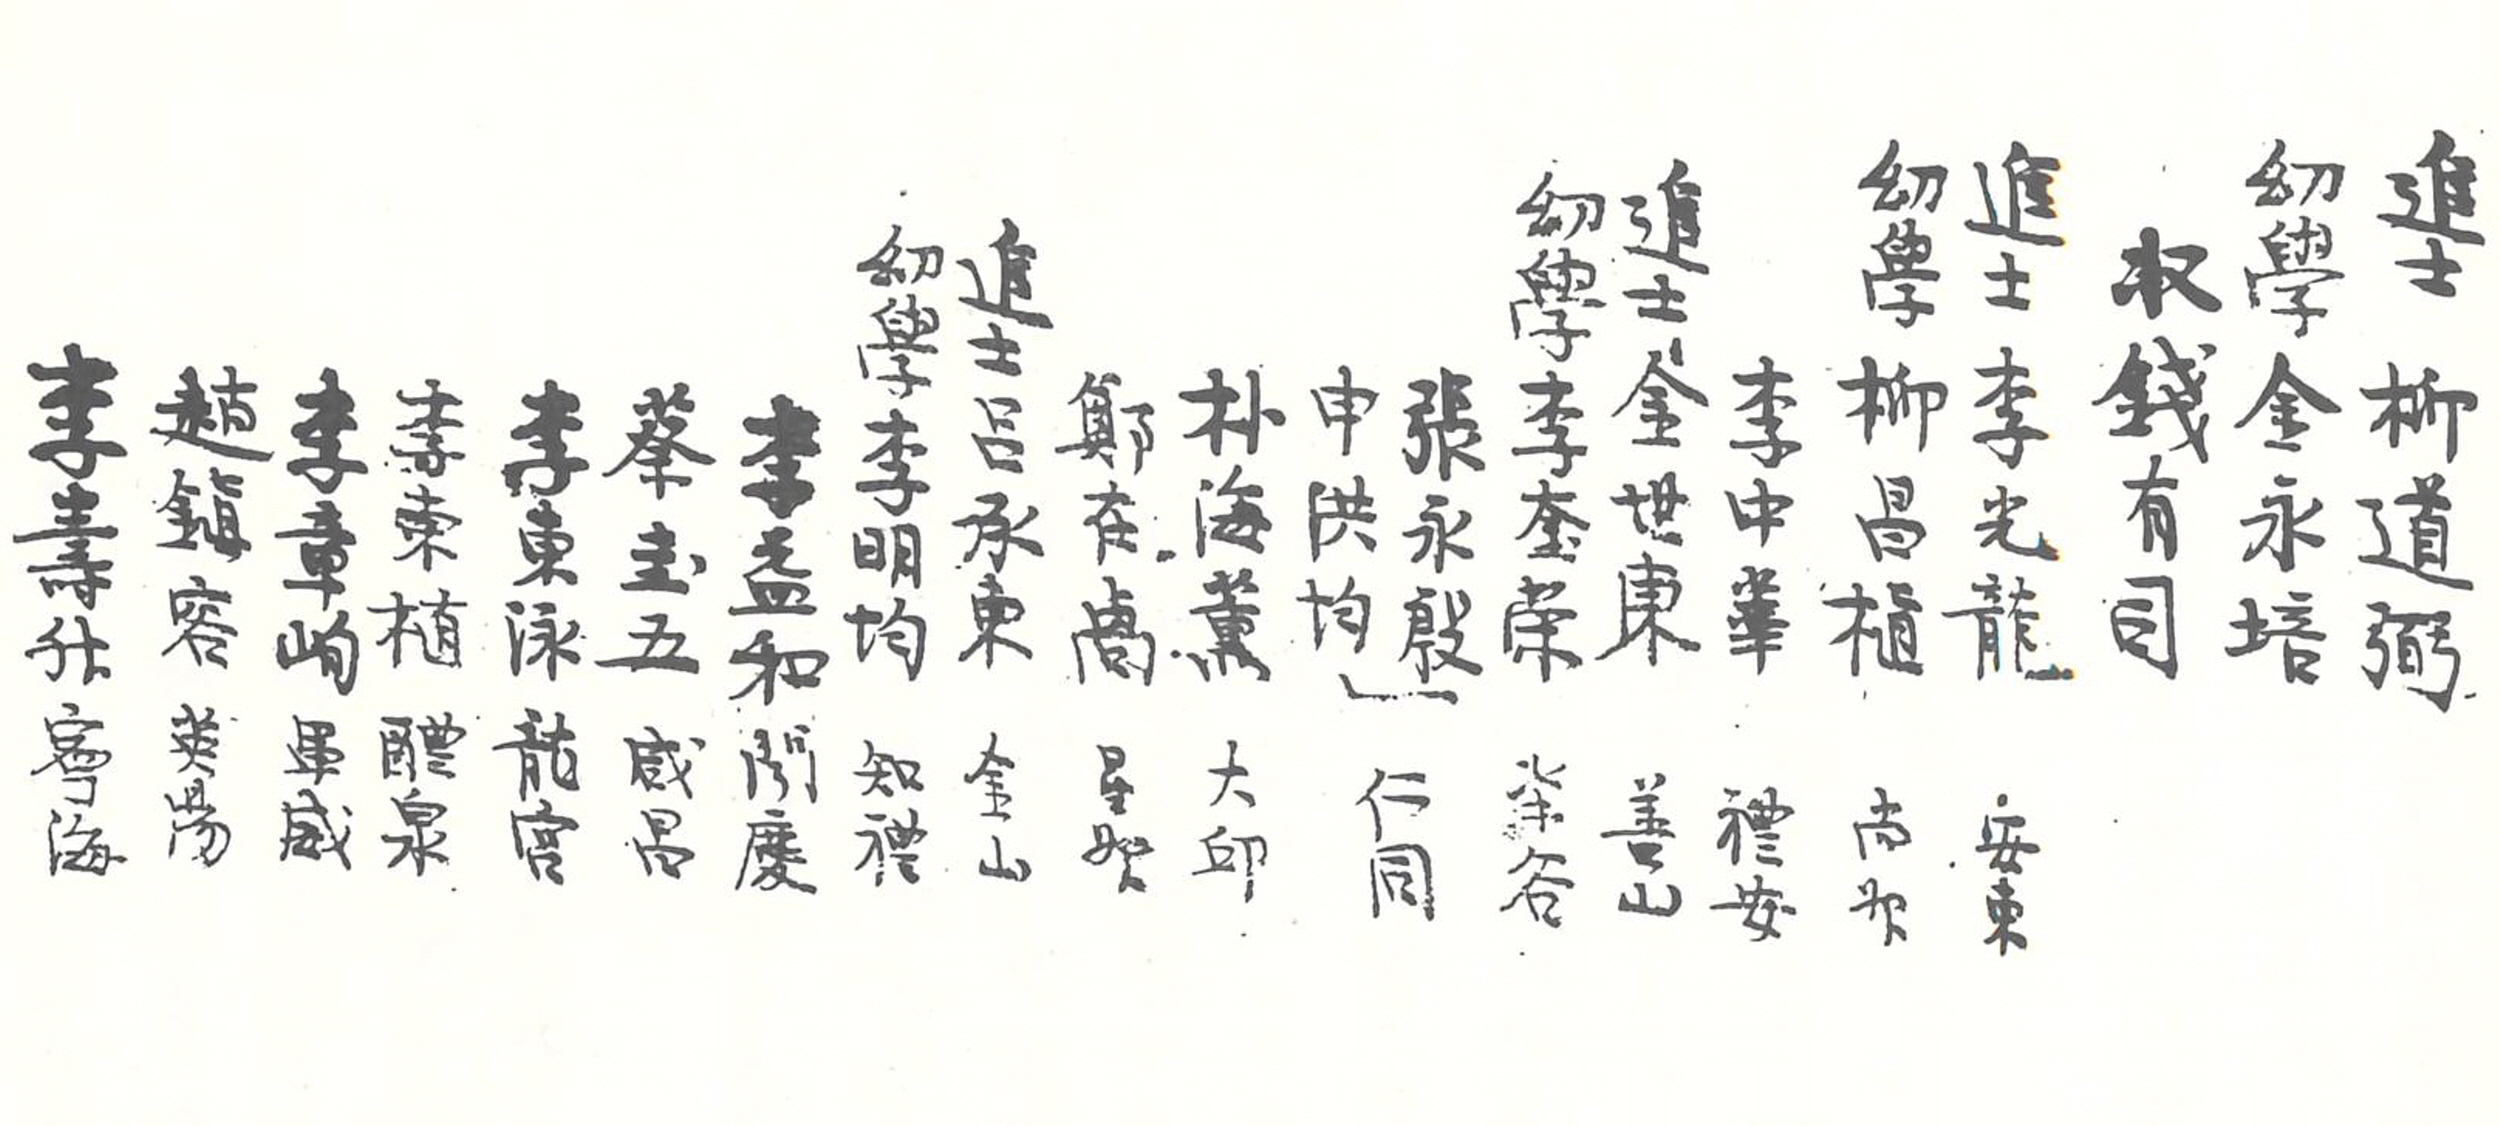 進士 柳道弼
幼學 金永培
收錢有司
進士 李光龍 安東
幼學 柳昌植 尚州
李中華 禮安
進士 金世東 善山
幼學 李奎榮 柒谷
張永殷
申洪均 仁同
朴海薰 大邱
鄭在卨 星州
進士 呂承東 金山
幼學 李明均 知禮
李益和 開慶
蔡圭五 咸昌
李東泳 龍宮
李東植 醴泉
李章峋 軍威
趙鎭容 英陽
李壽升 寧海